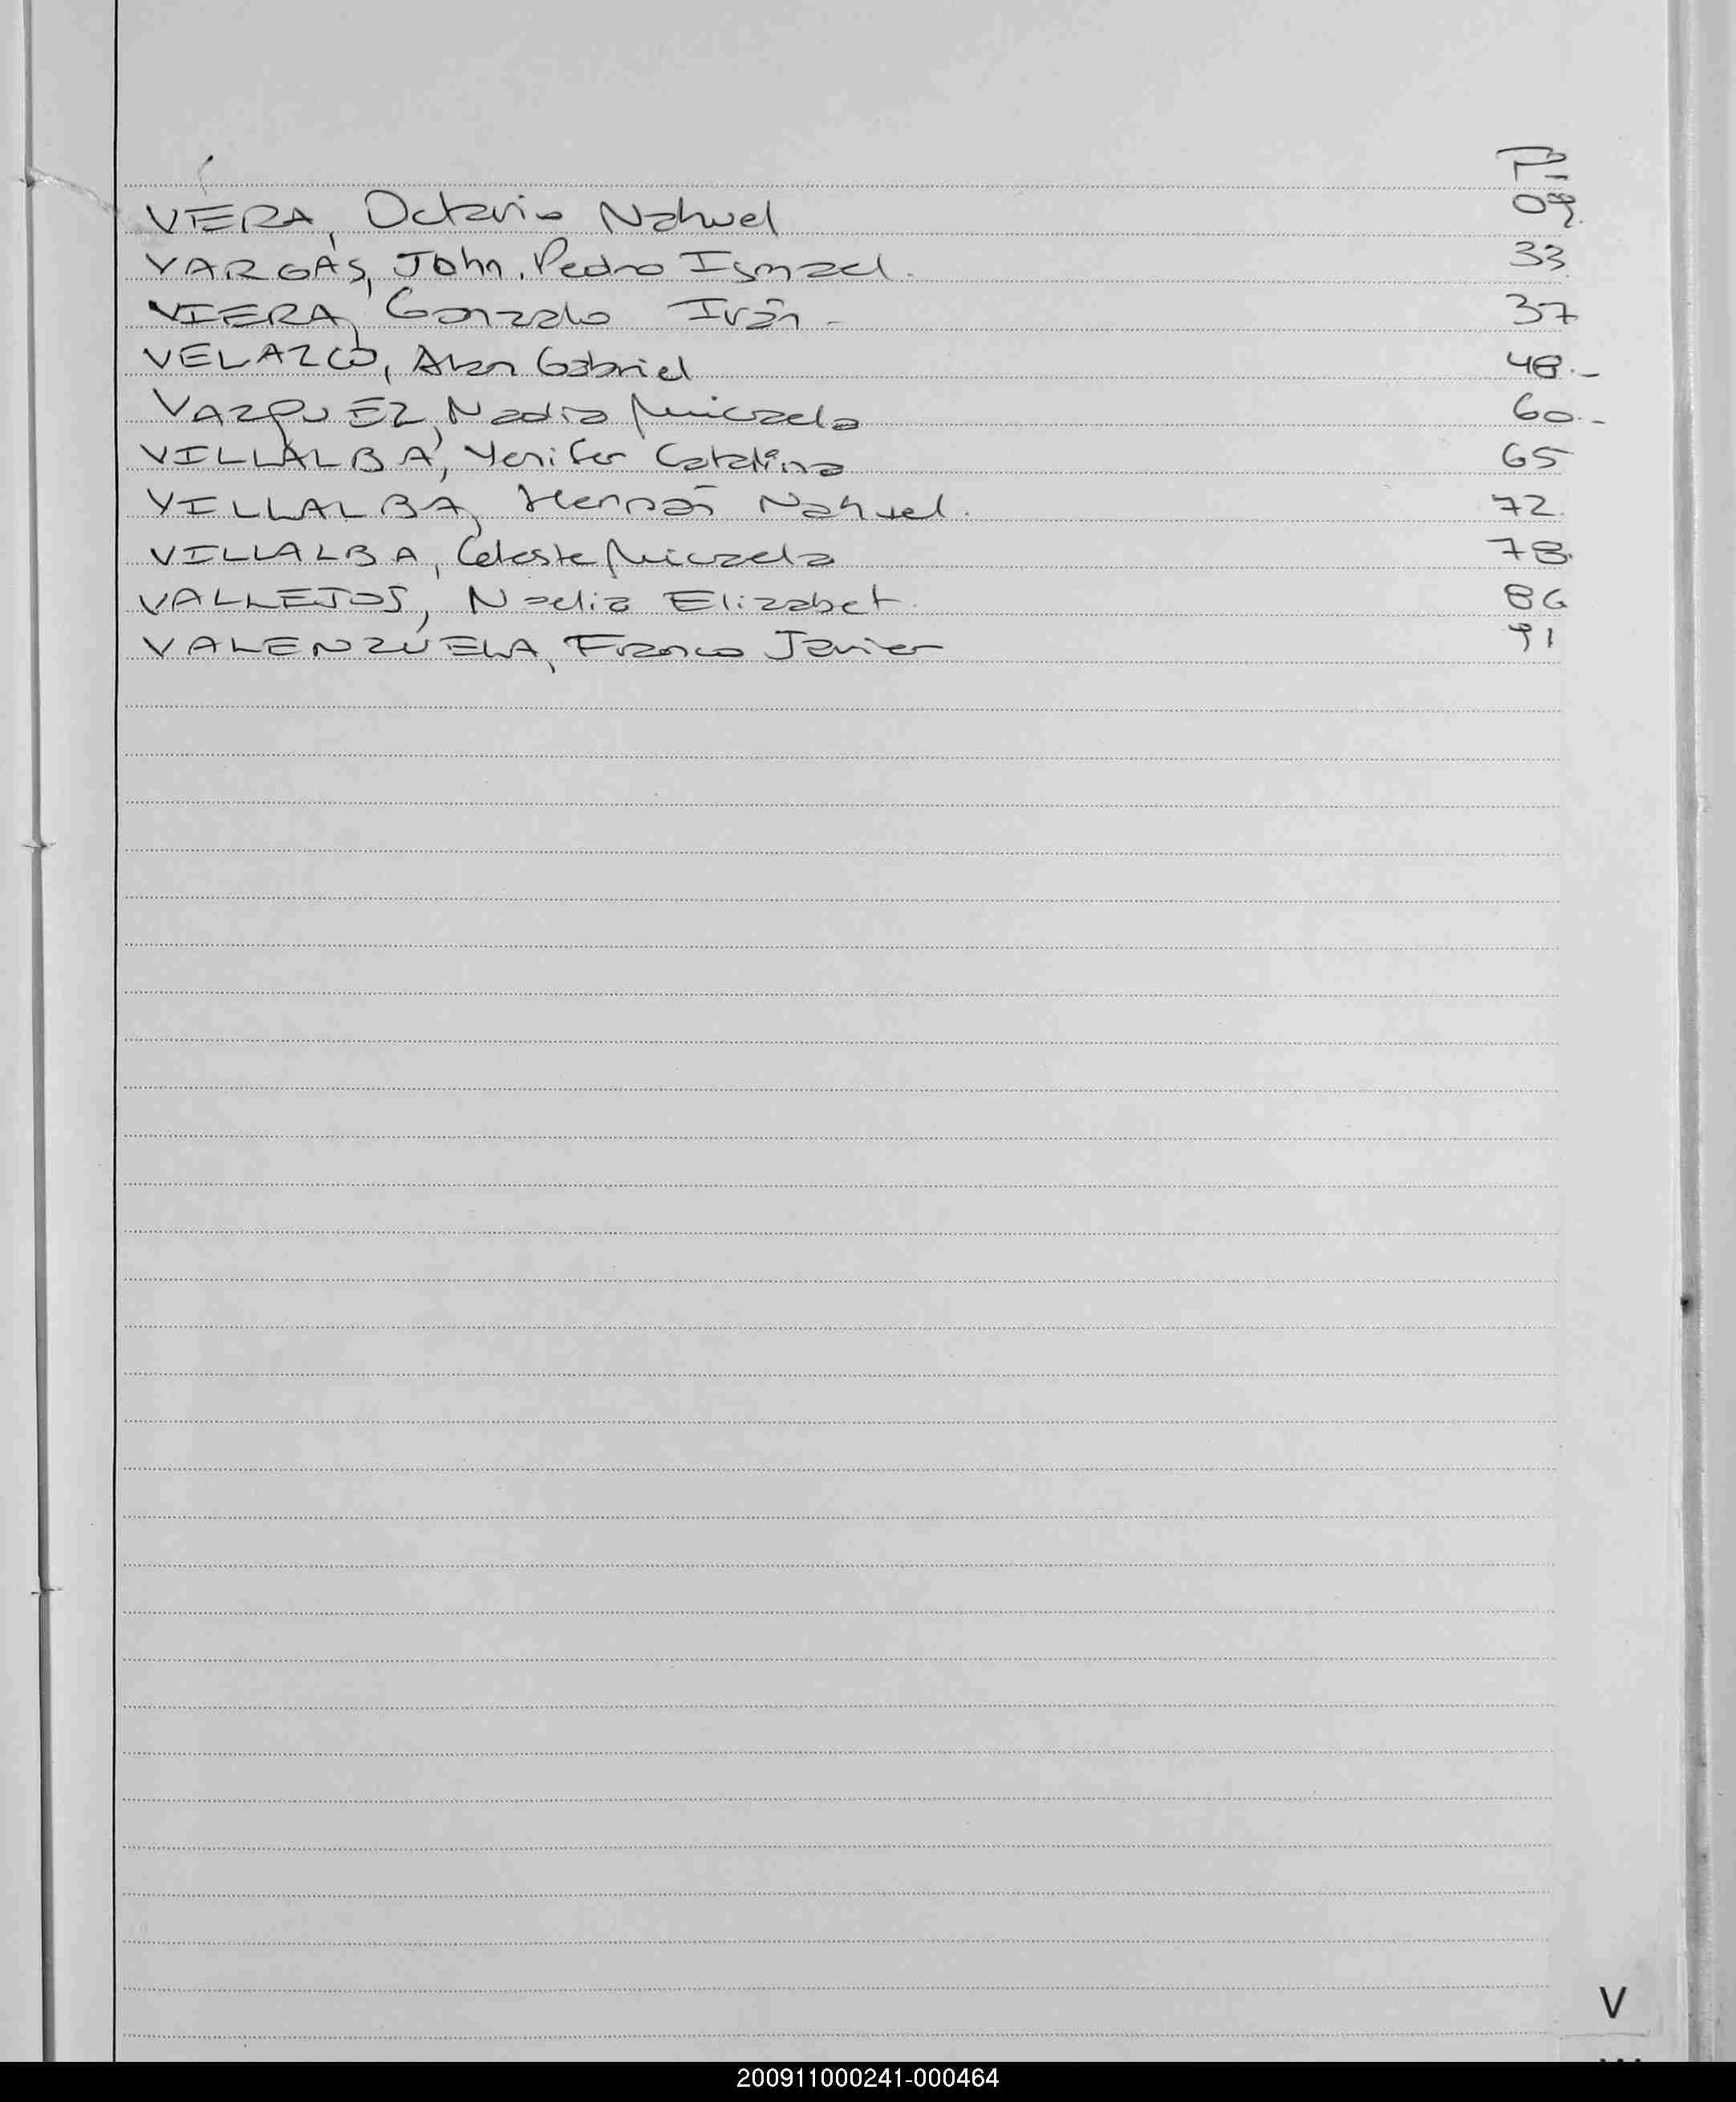 Fº
VERA, Octavio Nahuel 09.
VARGAS, John, Pedro Ismael. 33
VIERA, Gonzalo Iván - 37
VELAZCO, Alan Gabriel 48.-
VAZQUEZ, Nadia Micaela 60.-
VILLALBA, Yenifer Catalina 65
VILLALBA, Hernán Nahuel. 72.
VILLALBA, Celeste Micaela 78.
VALLEJOS, Noelia Elizabet. 86
VALENZUELA, Franco Javier 91
V
200911000241-000464